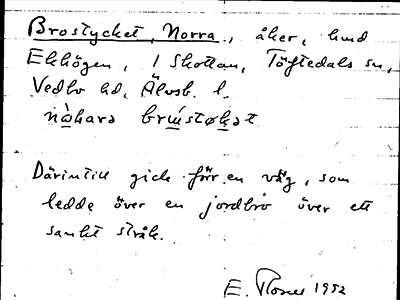 Brostycket, Norra, åker, hmd
Ekhögen, i Skottan, Töftedals sn,
Vedbo hd, Älvsb. l.
nὰhara brustøkət
Därintill gick förr en väg, som
ledde över en jordbro över ett
sankt stråk.
E. 1952